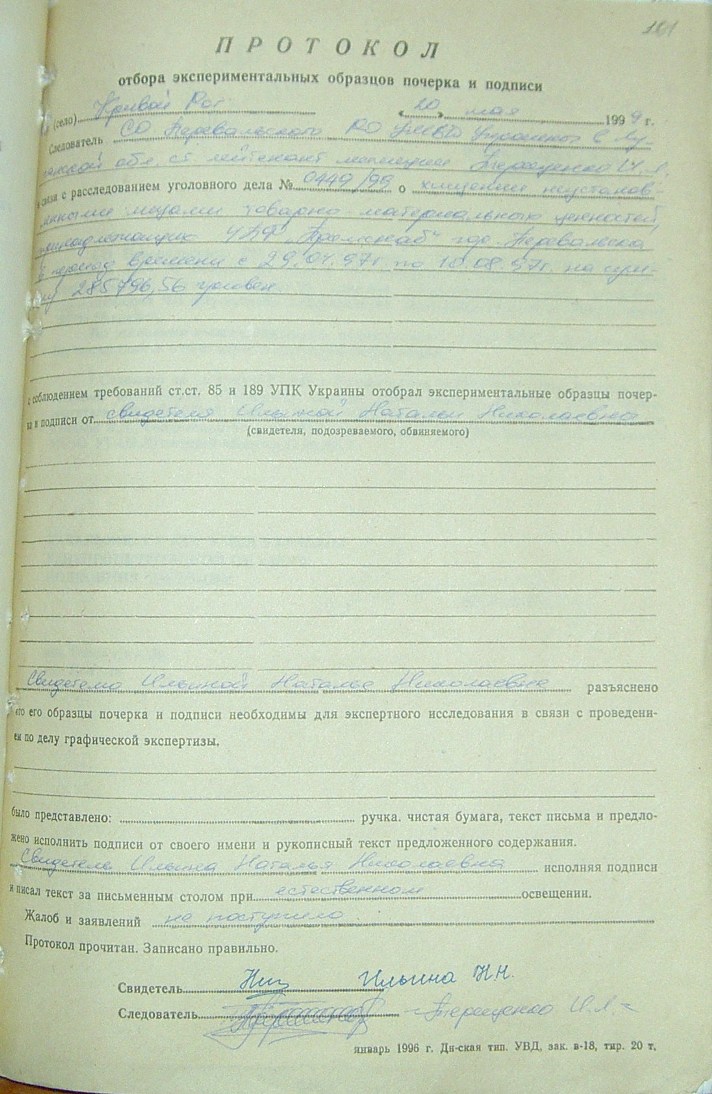 181
ПРОТОКОЛ
отбора экспериментальных образцов почерка и подписи
(село) Кривой Рог « 20 » мая 1999 г.
Следователь СО Перевальского РО УМВД Украины в Лу-
ганской обл. ст. лейтенант милиции Терещенко И.Л.
в связи с расследованием уголовного дела № 0449/99 о хищении неустанов-
ленными лицами товарно-материальных ценностей,
принадлежащих ЧДФ "Промснаб" гор. Перевальска
в период времени с 29.04.97г. по 10.08.97г. на сум-
му 285796,56 гривен
с соблюдением требований ст.ст. 85 и 189 УПК Украины отобрал экспериментальные образцы почер-
ка и подписи от свидетеля Ильиной Натальи Николаевны
(свидетеля, подозреваемого, обвиняемого)
Свидетелю Ильиной Наталье Николаевне разъяснено
что его образцы почерка и подписи необходимы для экспертного исследования в связи с проведени-
ем по делу графической экспертизы.
было представлено: ручка. чистая бумага, текст письма и предло-
жено исполнить подписи от своего имени и рукописный текст предложенного содержания.
Свидетель Ильина Наталья Николаевна исполняя подписи
и писал текст за письменным столом при естественном освещении.
Жалоб и заявлений не поступило.
Протокол прочитан. Записано правильно.
Свидетель Ильина Н.Н.
Следователь Терещенко И.Л.
январь 1996 г. Дн-ская тип. УВД, зак. в-18, тир. 20 т.